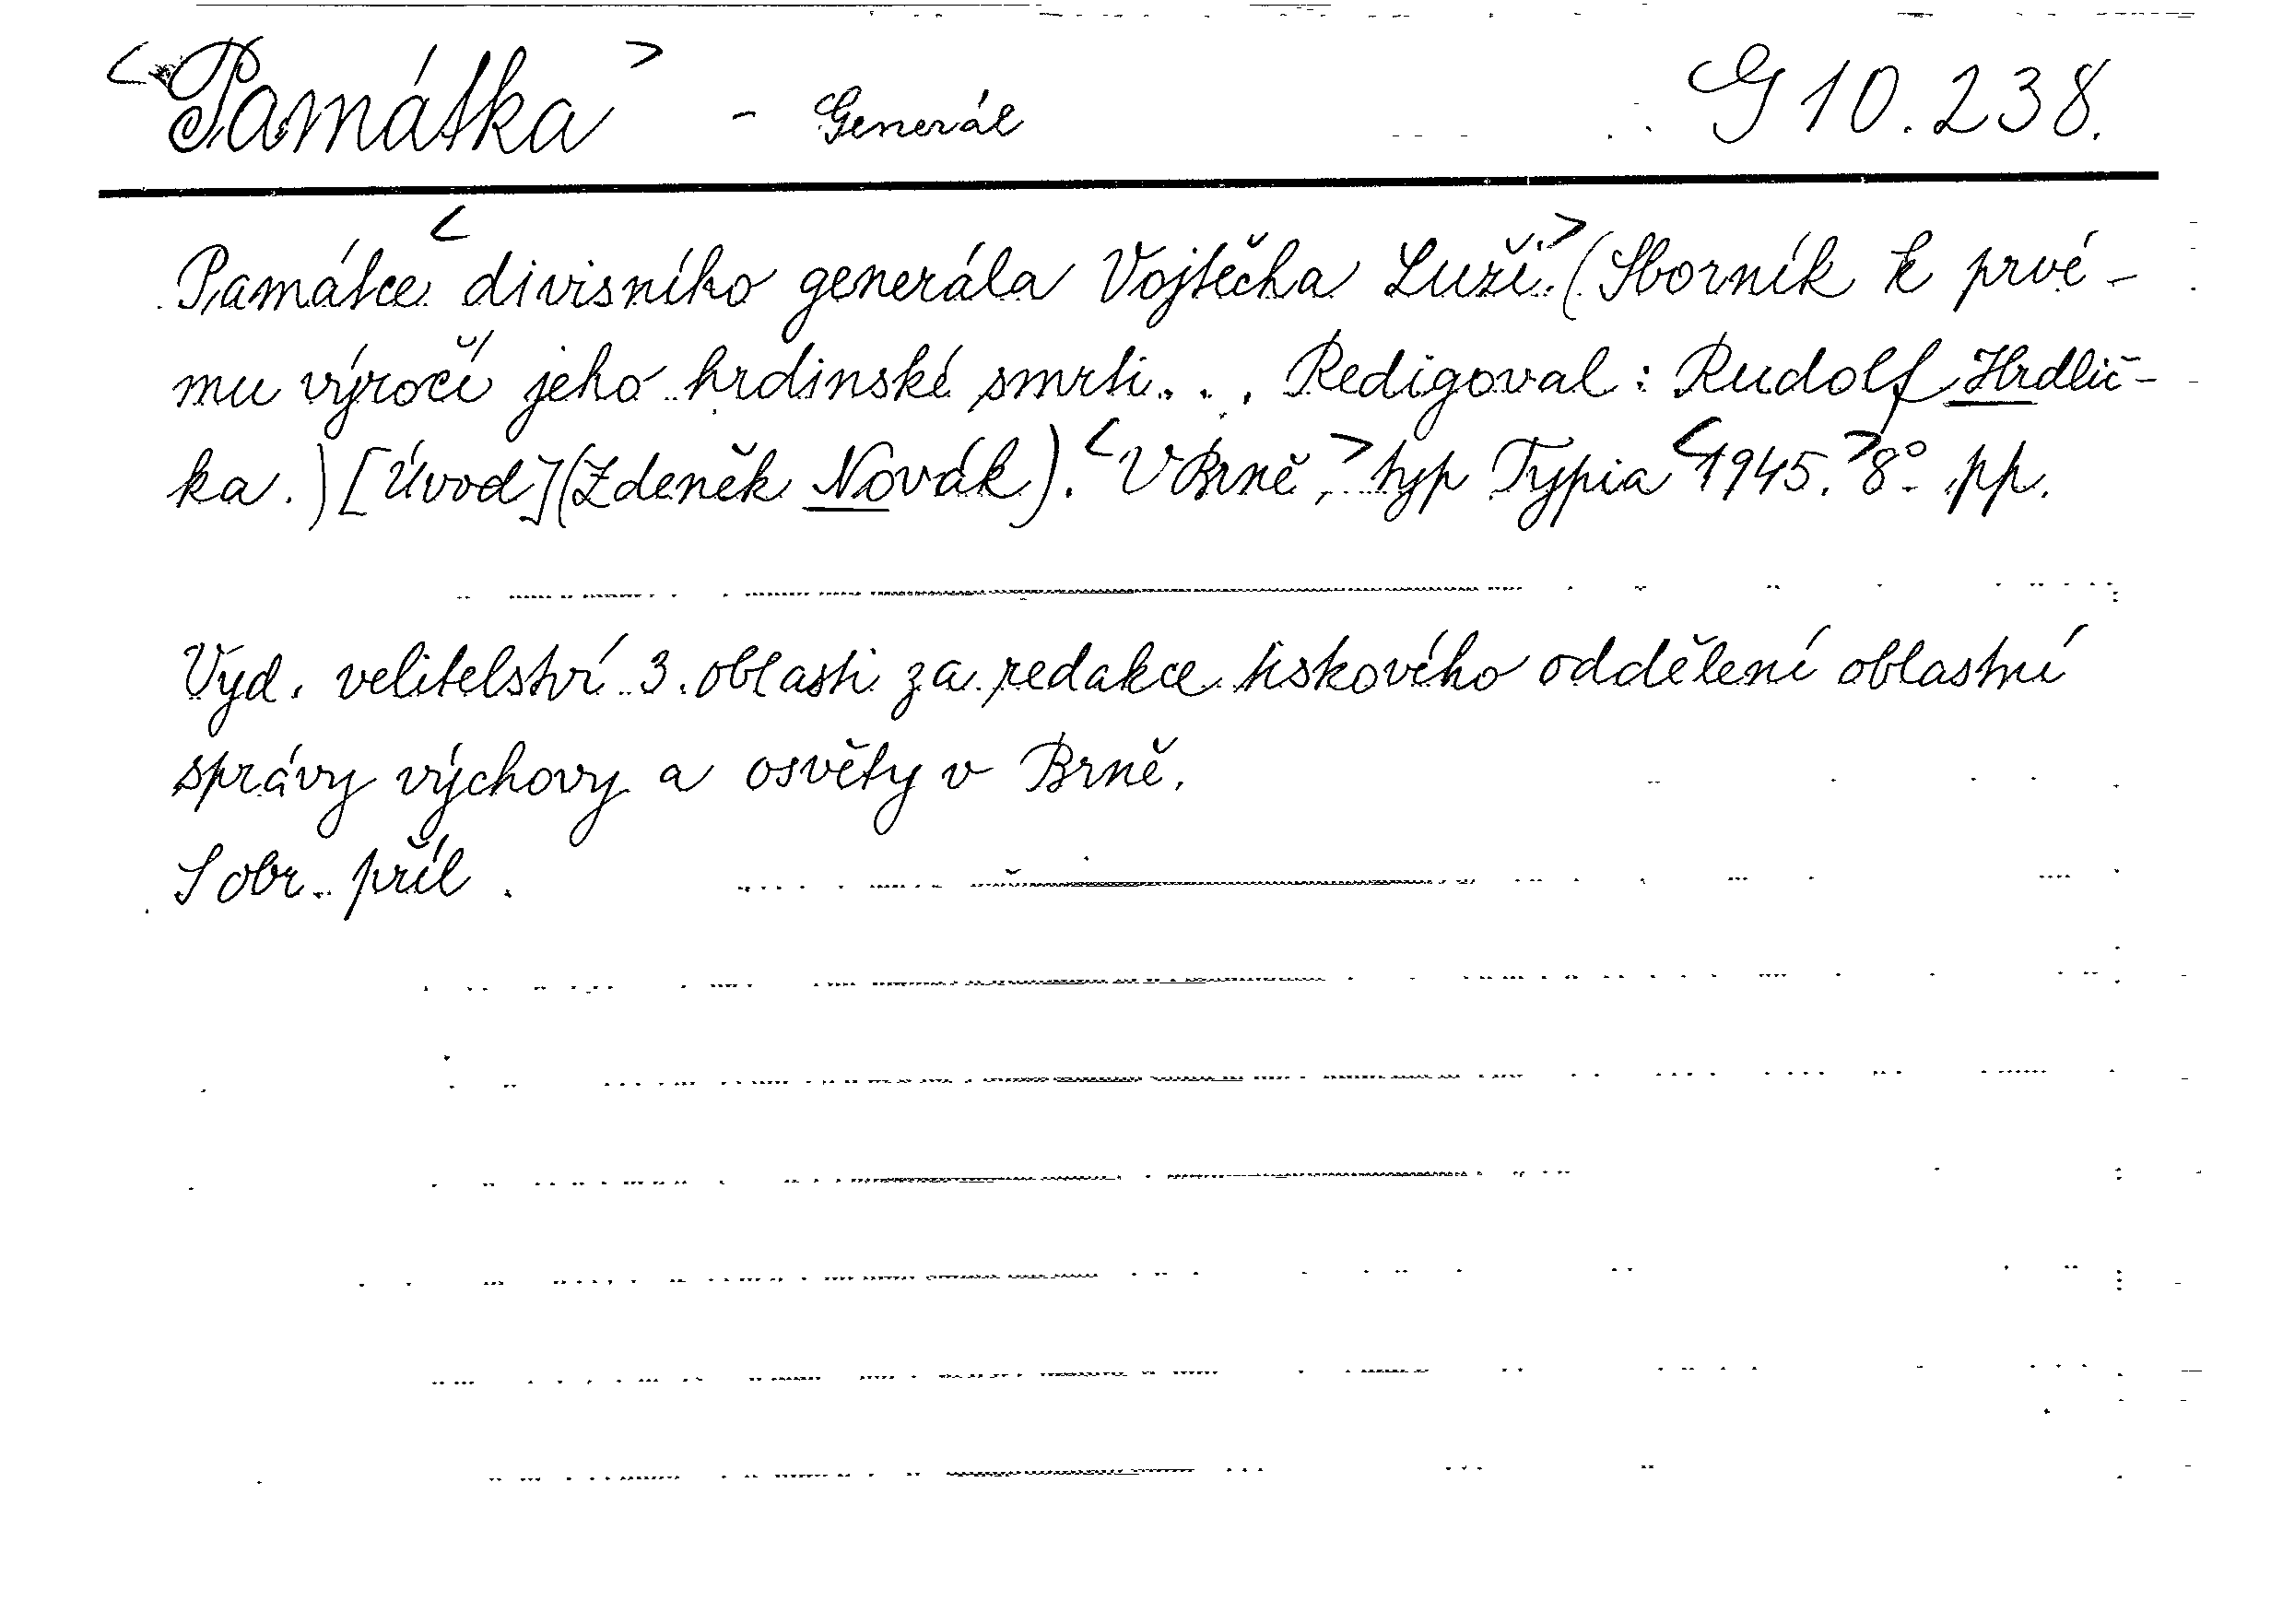 <Památka> - Generál G 10.238.
Památce <divisního generála Vojtěcha Luži.> (Sborník k prvé-
mu výročí jeho hrdinské smrti... Redigoval: Rudolf Hrdlič-
ka.) [Úvod] (Zdeněk Novák). <V Brně,> typ Typia <1945.> 8° pp.
Vyd. velitelství 3. oblasti za redakce tiskového oddělení oblastní
správy výchovy a osvěty v Brně.
S obr. příl.